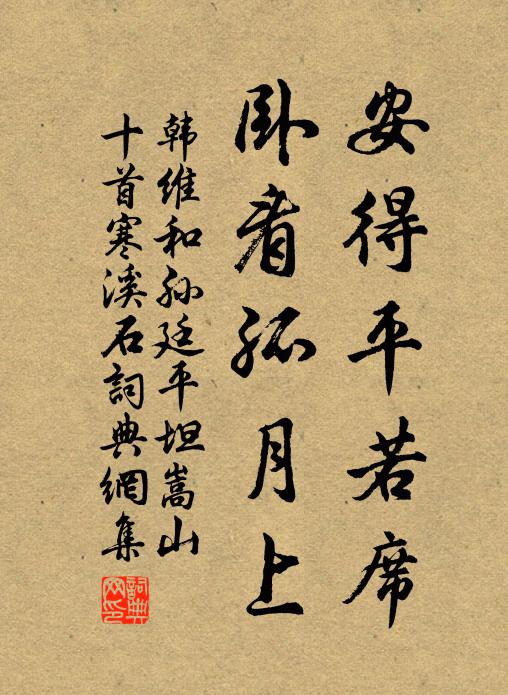 安得平若席
卧看孤月上
韩維和孙廷平坦嵩山
十首寒溪石詞典網集
詞典
网印